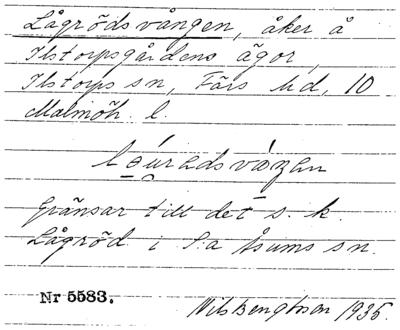 Lågrödsvången, åker å
Ilstorpsgårdens ägor,
Ilstorps sn, Färs hd, 10
Malmöh. l.
gränsar till det s. k.
Lågröd i S:a Åsums sn.
Nr 5583.
Nils Bengtsson 1935.